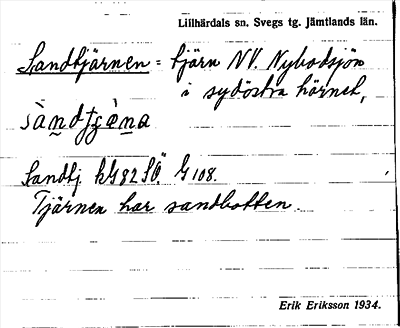 Lillhärdals sn. Svegs tg. Jämtlands län.
Sandtjärnen = tjärn NV. Nybodsjön
i sydöstra hörnet,
Sandtj. kbl 82 SO. G 108.
Tjärnen har sandbotten.
Erik Eriksson 1934.